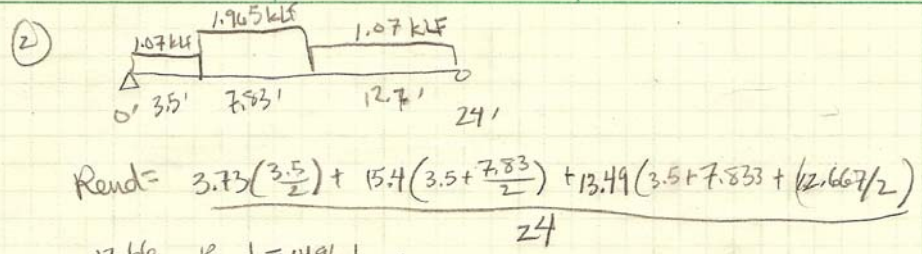 ②
1.965 KLF
1.07 KLF 1.07 KLF
0' 3.5' 7.83' 12.7' 24'
Rend= 3.73(3.5/2) + 15.4(3.5+7.83/2) +13.49(3.5+7.833+(12.667/2)
24